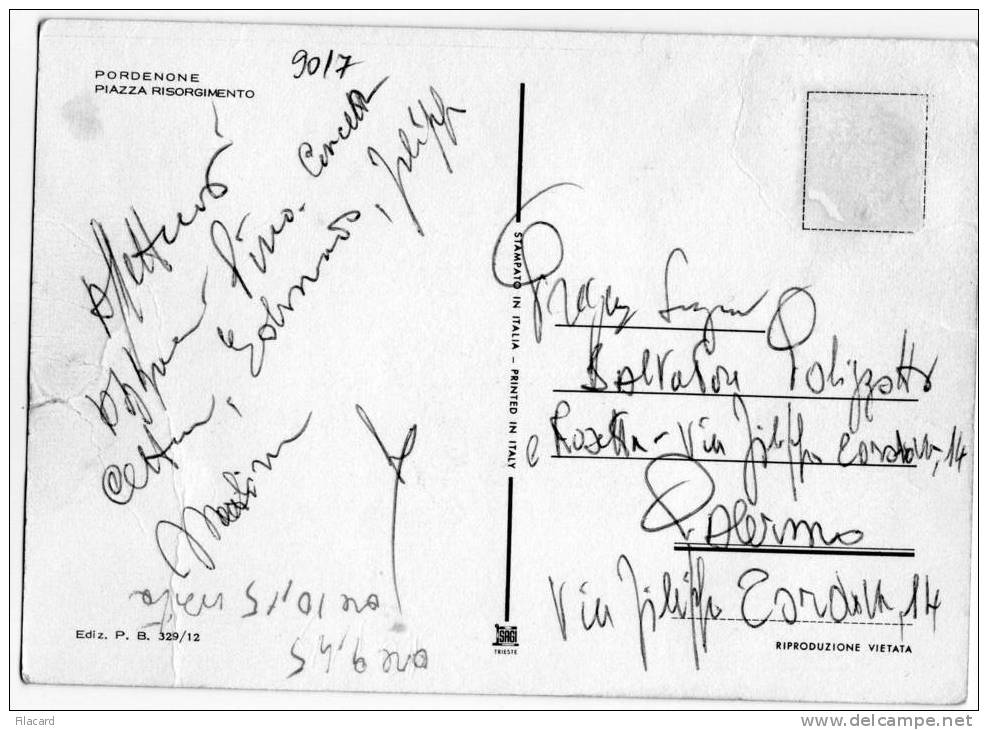 PORDENONE
PIAZZA RISORGIMENTO
90/7
Affettuosi
Pino. Concetta
Edmondo, Filippo
STAMPATO IN ITALIA - PRINTED IN ITALY
Salvatore Polizzotto
e Rosetta - Via Filippo Cordova, 14
Palermo
Via Filippo Cordova, 14
ore 10,15
ore 9,45
Ediz. P. B. 329/12
SAGI
TRIESTE
RIPRODUZIONE VIETATA
Filacard
www.delcampe.net